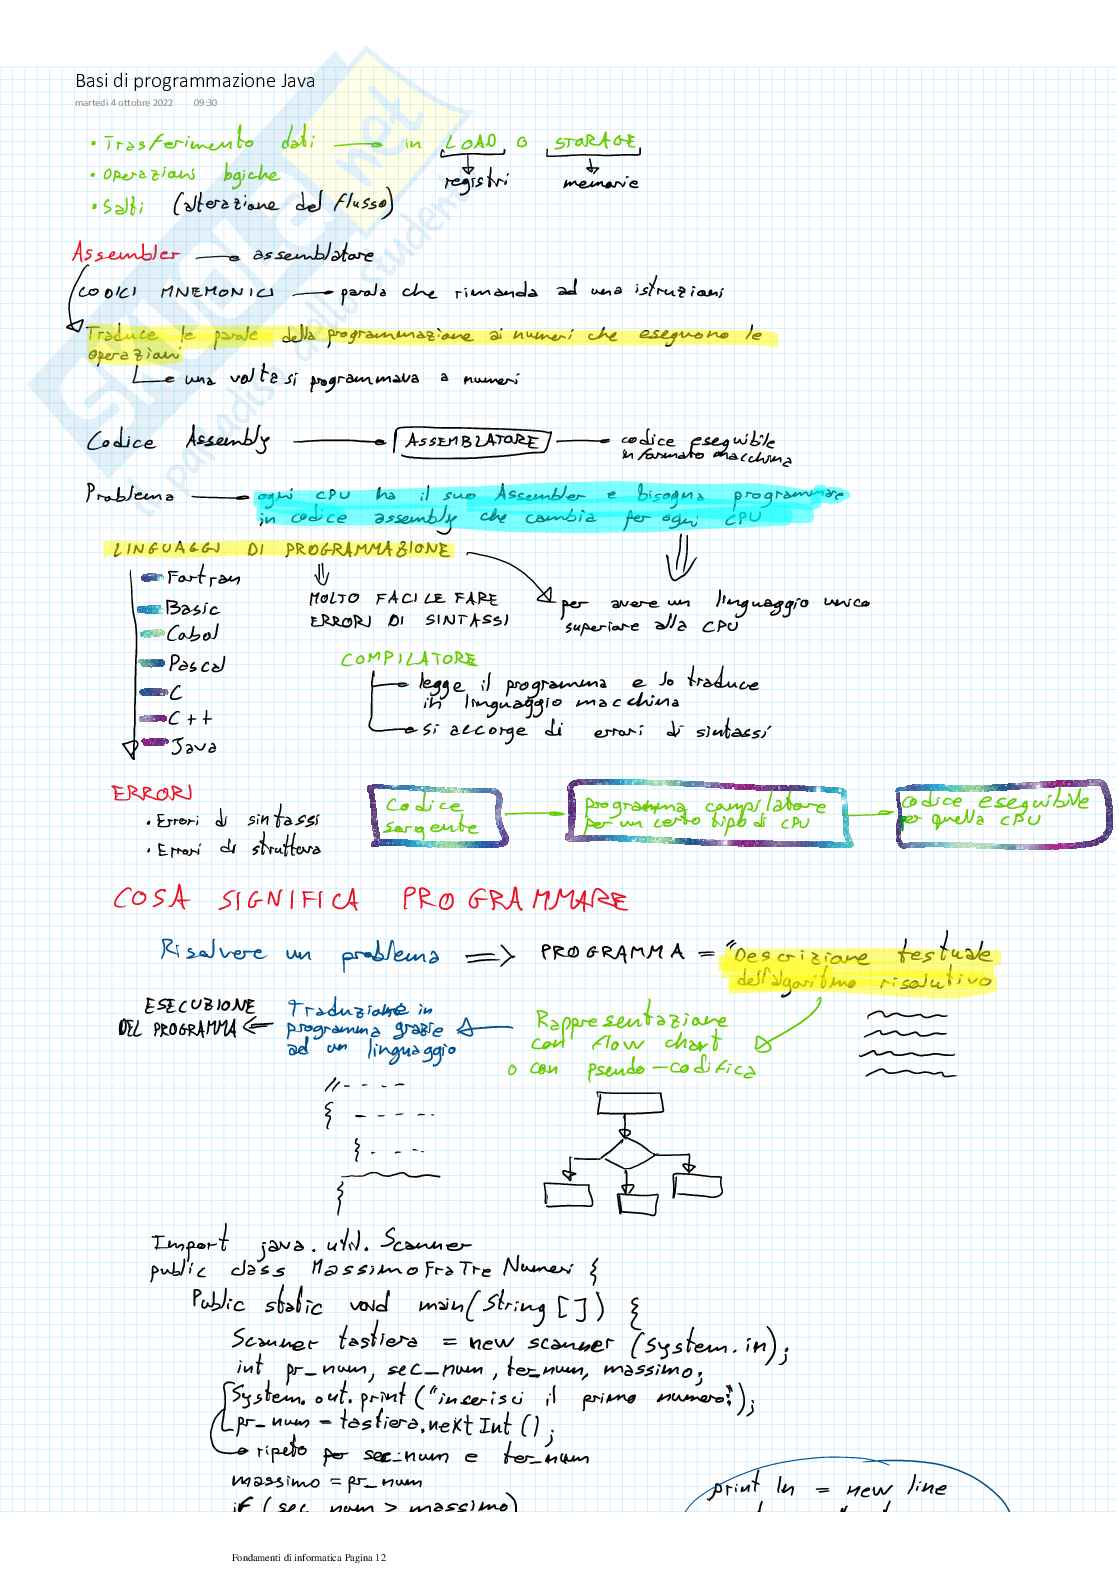 Basi di programmazione Java
martedì 4 ottobre 2022 09:30
• Trasferimento dati → in LOAD o STORAGE
registri memorie
• Operazioni logiche
• Salti (alterazione del flusso)
Assembler → assemblatore
CODICI MNEMONICI → parola che rimanda ad una istruzioni
Traduce le parole della programmazione ai numeri che eseguono le
operazioni
una volta si programmava a numeri
Codice Assembly → ASSEMBLATORE → codice eseguibile
in formato macchina
Problema → ogni CPU ha il suo Assembler e bisogna programmare
in codice assembly che cambia per ogni CPU
LINGUAGGI DI PROGRAMMAZIONE
Fortran
Basic
Cobol
Pascal
C
C++
Java
MOLTO FACILE FARE
ERRORI DI SINTASSI
per avere un linguaggio unico
superiore alla CPU
COMPILATORE
legge il programma e lo traduce
in linguaggio macchina
si accorge di errori di sintassi
ERRORI
• Errori di sintassi
• Errori di struttura
Codice
sorgente
programma compilatore
per un certo tipo di CPU
codice eseguibile
per quella CPU
COSA SIGNIFICA PROGRAMMARE
Risolvere un problema => PROGRAMMA = "Descrizione testuale
dell'algoritmo risolutivo
Rappresentazione
con flow chart
o con pseudo-codifica
Traduzione in
programma grazie
ad un linguaggio
ESECUZIONE
DEL PROGRAMMA
Import java.util.Scanner
public class MassimoFraTreNumeri {
Public static void main(String []) {
Scanner tastiera = new scanner (System.in);
int pr_num, sec_num, ter_num, massimo;
System.out.print ("inserisci il primo numero:");
pr_num = tastiera.nextInt ();
ripeto per sec_num e ter_num
massimo = pr_num
if (sec_num > massimo)
print ln = new line
Fondamenti di informatica Pagina 12
SKUOLA.net
il paradiso dello studente